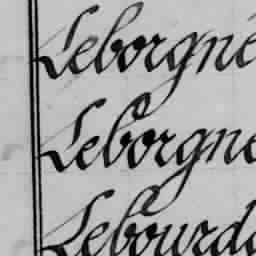 Leborgne
Leborgne
Lebourdo